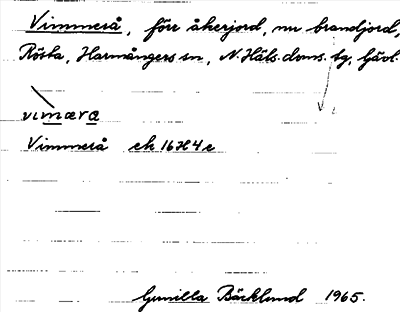 Vimmerå, förr åkerjord, nu brandjord,
Rösta, Harmångers sn, N. Häls. doms. tg, Gävl.
vımæra
Vimmerå ek 16H4e
Gunilla Bäcklund 1965.